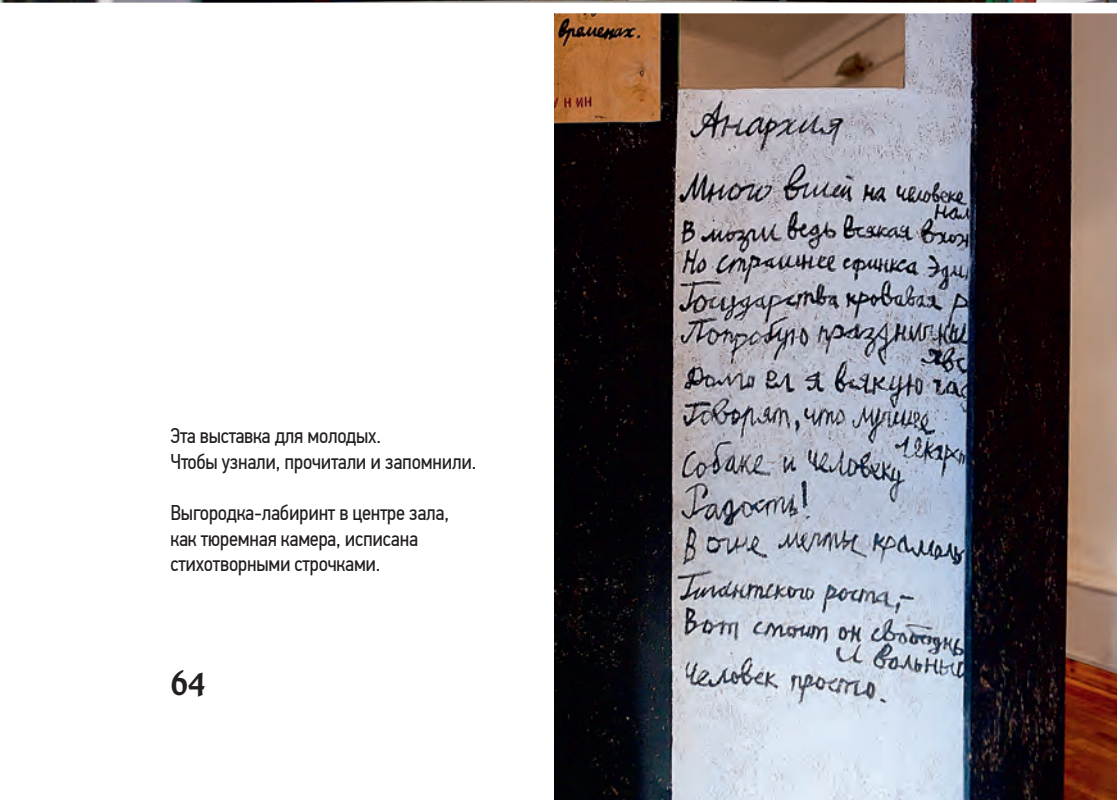 Эта выставка для молодых.
Чтобы узнали, прочитали и запомнили.
Выгородка-лабиринт в центре зала,
как тюремная камера, исписана
стихотворными строчками.
64
временах.
УНИН
Анархия
Много вшей на человеке
нал
В мозги ведь всякая вхож
Но страшнее сфинкса Эди
Государства кровавая р
Попробую празднич
явс
Долго ел я всякую гад
Говорят, что лучшее
лекарст
Собаке и человеку
Радость!
В огне мечты крамоль
Гигантского роста,–
Вот стоит он свободны
И вольный
Человек просто.